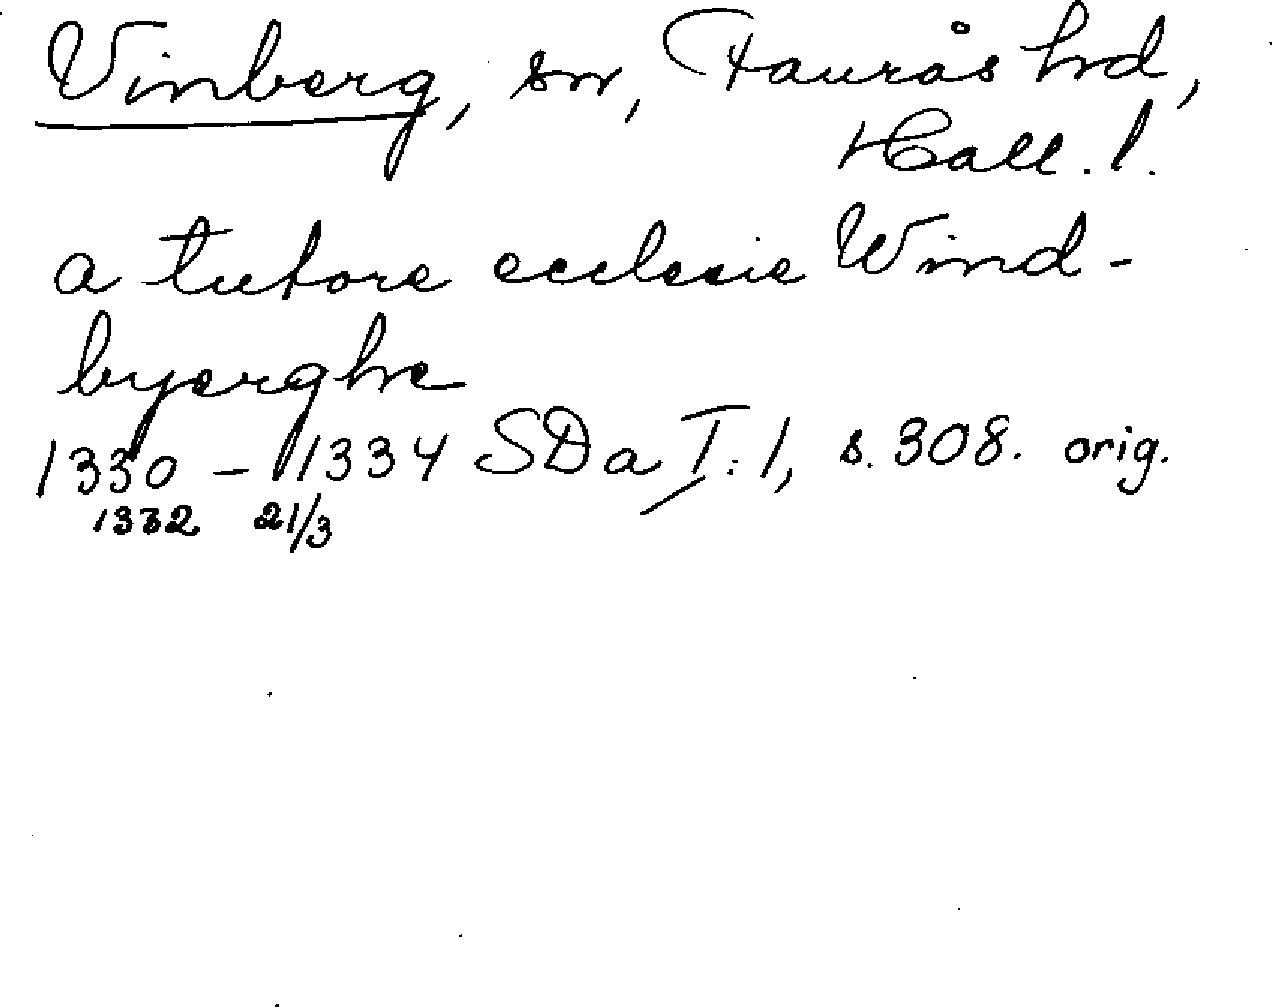 Vinberg, sn, Faurås hrd,
Hall. l.
a tutore ecclesie Wind-
byerghe
1330 - 1334 SDa I:1, s. 308. orig.
1332 21/3